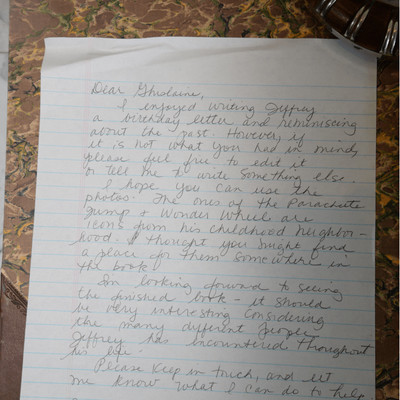 Dear Ghislaine,
I enjoyed writing Jeffrey
a birthday letter and reminiscing
about the past. However, if
it is not what you had in mind,
please feel free to edit it
or tell me to write something else.
I hope you can use the
photos. The ones of the Parachute
Jump + Wonder Wheel are
icons from his childhood neighbor-
hood. I thought you might find
a place for them somewhere in
the book.
I'm looking forward to seeing
the finished book - it should
be very interesting considering
the many different people
Jeffrey has encountered throughout
his life.
Please keep in touch, and let
me know what I can do to help